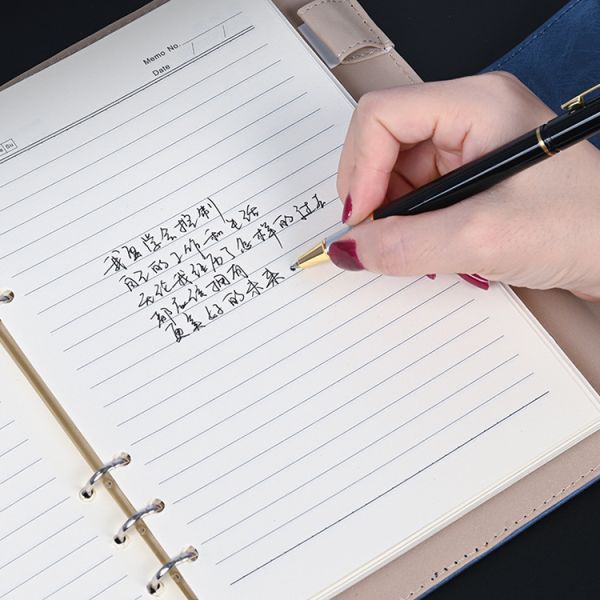 Memo No.
Date / /
Su
我应学会控制
自己的工作和生活
无论我经历了怎样的过去
都应该拥有
更美好的未来